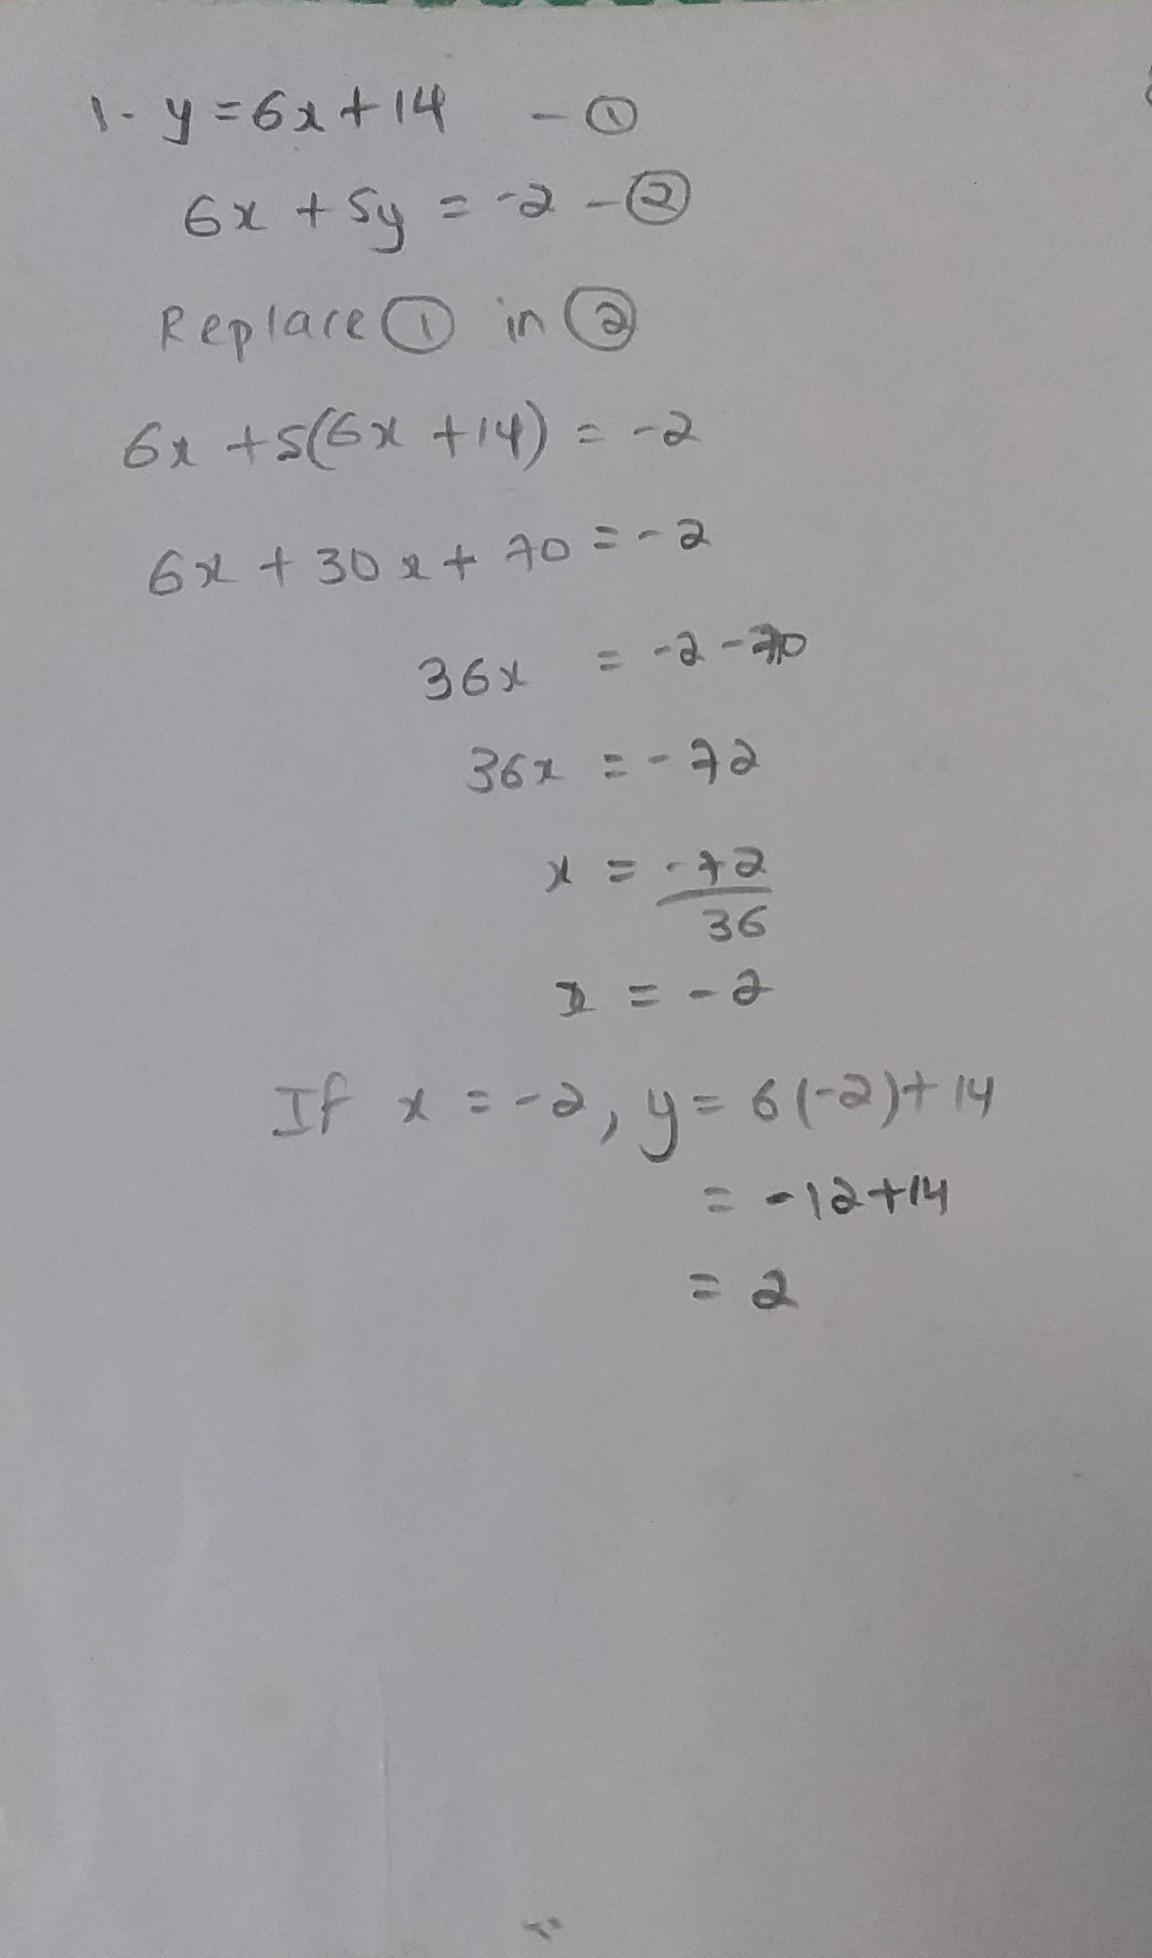 1. y = 6x + 14 - ①
6x + 5y = -2 - ②
Replace ① in ②
6x + 5(6x + 14) = -2
6x + 30x + 70 = -2
36x = -2 - 70
36x = -72
x = -72/36
x = -2
If x = -2, y = 6(-2) + 14
= -12 + 14
= 2